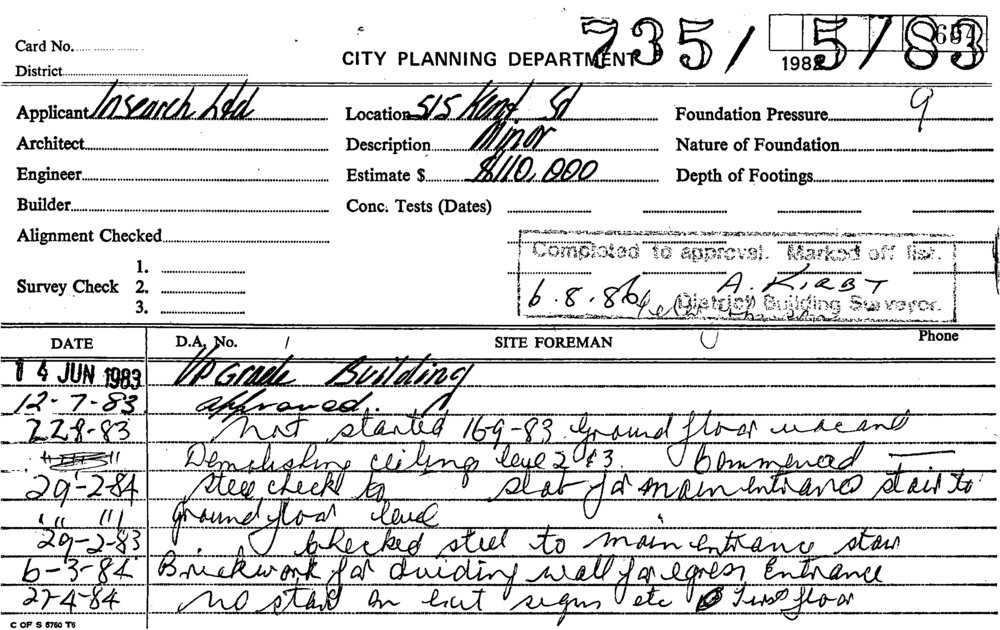 735/5/83
Card No.
CITY PLANNING DEPARTMENT 1982
District
Applicant Insearch Ltd Location 515 Kent St Foundation Pressure 9
Architect Description Minor Nature of Foundation
Engineer Estimate $ $110,000 Depth of Footings
Builder Conc. Tests (Dates)
Alignment Checked
Completed to approval. Marked off list.
1.
Survey Check 2. 6.8.86 A. KIRBY
3. District Building Surveyor.
DATE D.A. No. SITE FOREMAN Phone
14 JUN 1983 UPGrade Building
12-7-83 approved.
22-8-83 Not started 16-9-83 ground floor vacant
Demolishing ceilings level 2 & 3 Commenced
29-2-84 steel checks to slab for main entrance stair to
" " ground floor level
29-2-83 Checked steel to main entrance stair
6-3-84 Brickwork for dividing wall for egress Entrance
27-4-84 no start on exit signs etc First floor
C OF S 5760 T6